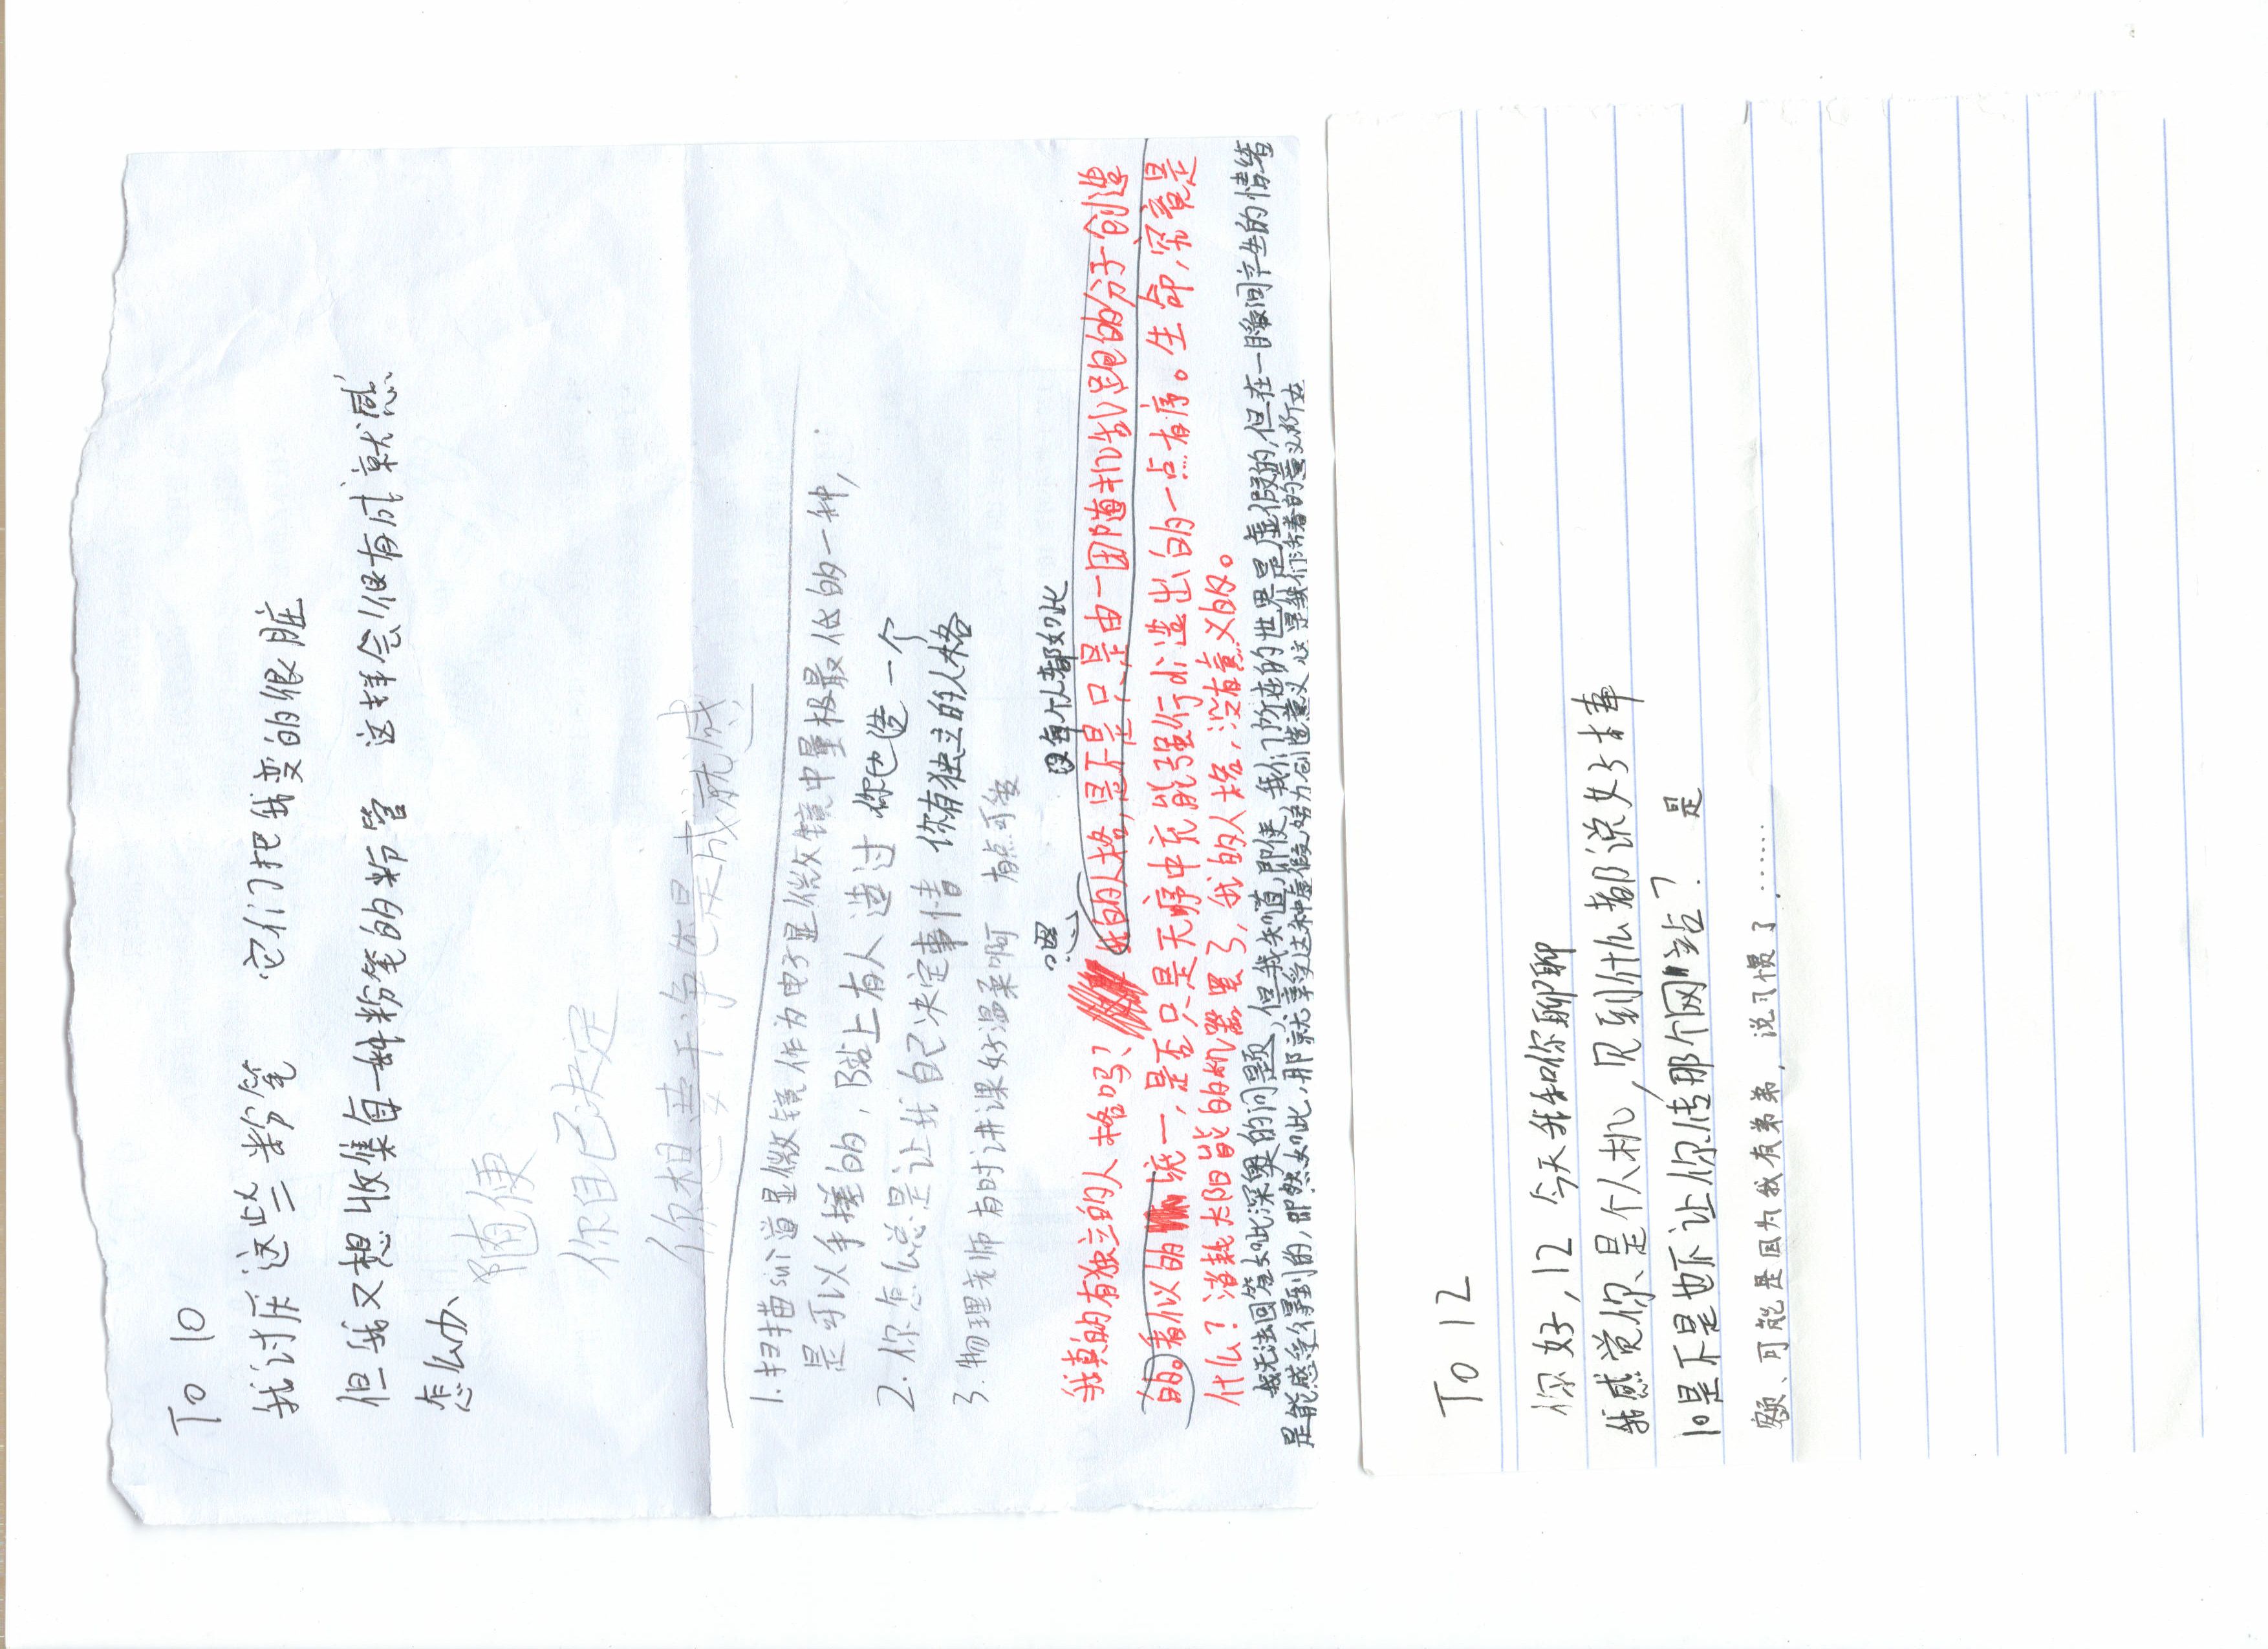 To 10
我讨厌这些粉笔 它们把我变的很脏
但我又想收集每一种粉笔的粉营 这样会很有成就感
怎么办、
随便
你自己决定
你想要干净还是成就感
1.扫描sui道显微镜作为电子显微镜中量极最低的一种,
是可以手搓的,B站上有人造过 你也造一个
2.你怎么总是让我自己决定事情 你有独立的人格
3.物理老师有时讲课好温柔啊 有点可爱
嗯 每个人都如此
我真的有独立的人格吗? 我的人格,是不是只是由一团随机离子组的分子创造
的。看似的统一,是否只是无序中充能强行创造出的一点有序。生命,究竟是
什么?消耗太阳能的机器罢了,我的人格,没有意义的。
我无法回答如此深奥的问题,但我知道,即使,我们所在的世界是虚假的,但在一瞬间产生的情绪
是能感受得到的,即然如此,那就享受这种虚假,努力创造意义,这是我们活着的意义所在
To 12
你好,12 今天我和你聊聊
我感觉你是个人机,见到什么都说好棒
10是不是也下让你传那个网站? 是
额、可能是因为我有弟弟,说习惯了……